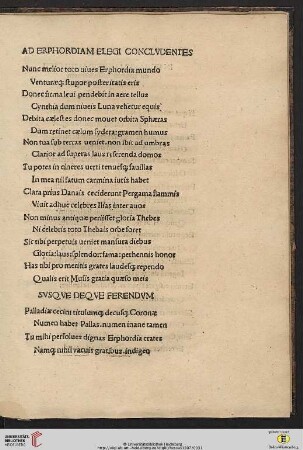 AD ERPHORDIAM ELEGI CONCLVDENTES
Nunc melior toto uiues Erphordia mundo
Venturæq; stupor posteritatis eris
Donec firma leui pendebit in aere tellus
Cynthia dum niueis Luna vehetur equis
Debita cælestes donec mouet orbita Sphæras
Dum retinet cælum sydera: gramen humus
Non tua sub terras ueniet, non ibit ad umbras
Clarior ad superas laus referenda domos
Tu potes in cineres uerti tenuesq; fauillas
In mea nil fatum carmina iuris habet
Clara prius Danais ceciderunt Pergama flammis
Viuit adhuc celebres Ilias inter auos
Non minus antiquæ periisset gloria Thebes
Ni celebris toto Thebais orbe foret
Sic tibi perpetuis ueniet mansura diebus
Gloria: laus: splendor: fama: perhennis honor
Has tibi pro meritis grates laudesq; rependo
Qualis erit Musis gratia quæso meis
SVSQVE DEQVE FERENDVM
Palladiæ cecini titulumq; decusq; Coronæ
Numen habet Pallas: numen inane tamen
Tu mihi persoluer dignas Erphordia grates
Namq; nihil vacuis gratibus indigeo
UNIVERSITÄTS-BIBLIOTHEK HEIDELBERG
© Universitätsbibliothek Heidelberg